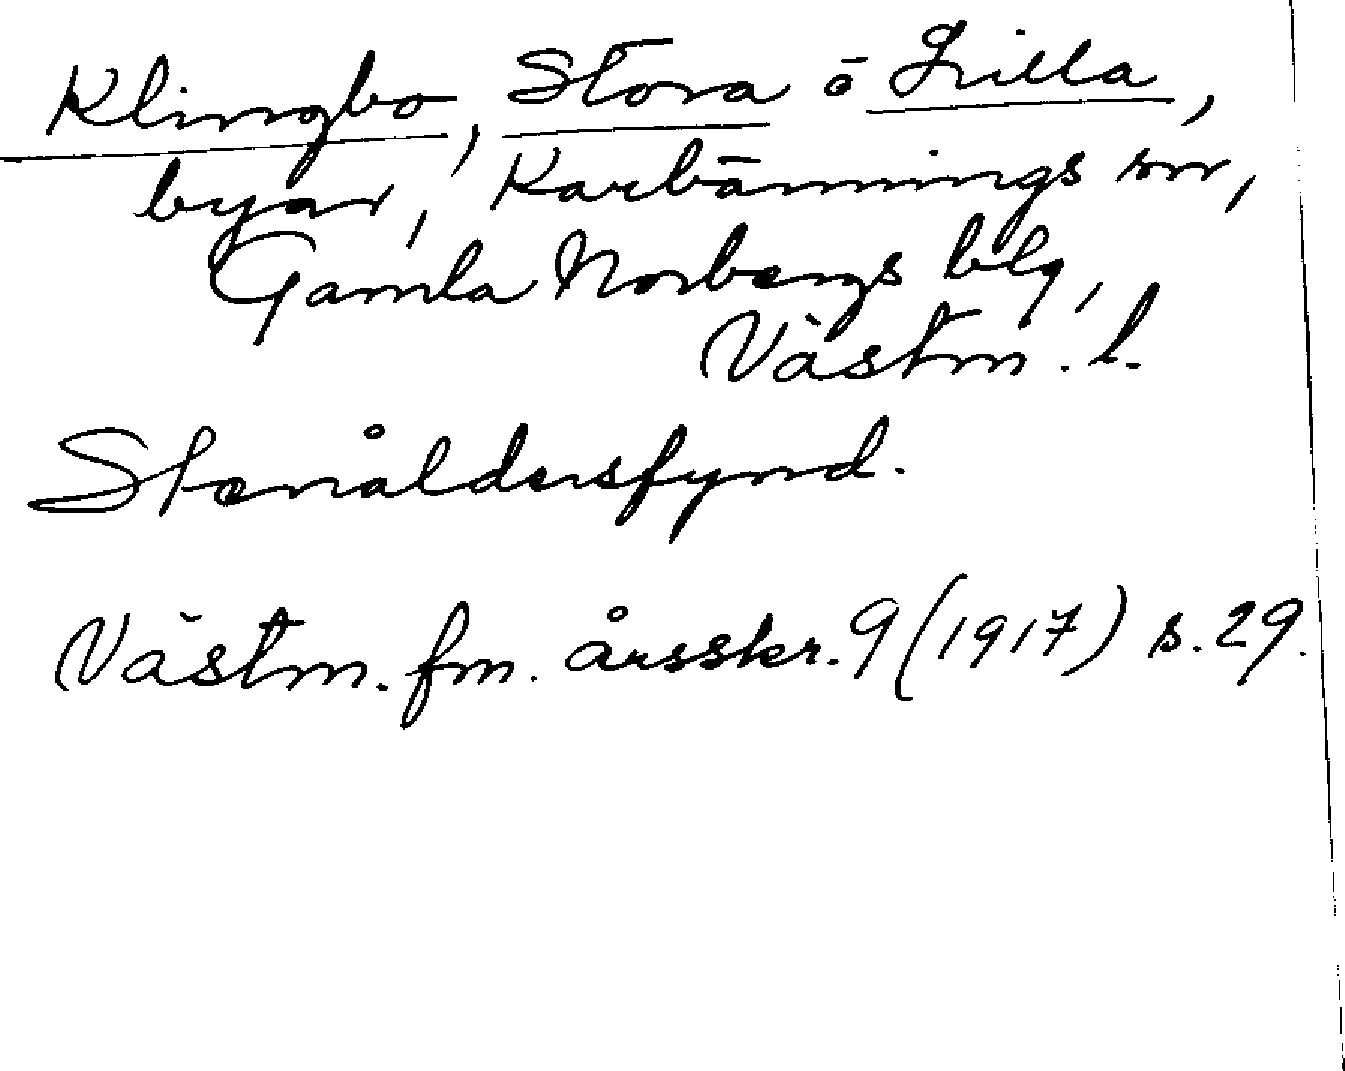 Klingbo, Stora o Lilla,
byar, Karbännings sn,
Gamla Norbergs blg,
Västm. l.
Stenåldersfynd.
Västm. fm. årsskr. 9 (1917) s. 29.